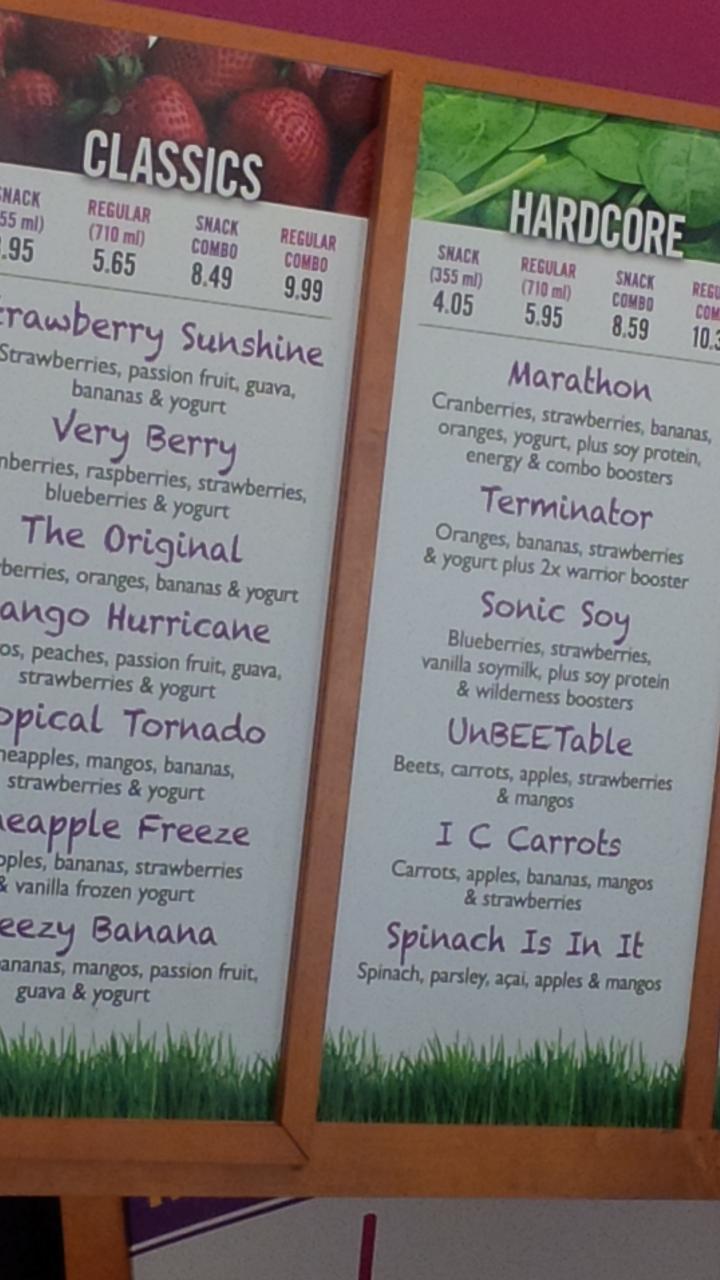 CLASSICS
SNACK REGULAR SNACK REGULAR
(710 ml) COMBO COMBO
5.65 8.49 9.99
Strawberry Sunshine
Strawberries, passion fruit, guava,
bananas & yogurt
Very Berry
raspberries, strawberries,
blueberries & yogurt
The Original
oranges, bananas & yogurt
Hurricane
peaches, passion fruit, guava,
strawberries & yogurt
Tornado
mangos, bananas,
strawberries & yogurt
Freeze
bananas, strawberries
& vanilla frozen yogurt
Banana
mangos, passion fruit,
guava & yogurt
HARDCORE
SNACK REGULAR SNACK
(355 ml) (710 ml) COMBO
4.05 5.95 8.59
Marathon
Cranberries, strawberries, bananas,
oranges, yogurt, plus soy protein,
energy & combo boosters
Terminator
Oranges, bananas, strawberries
& yogurt plus 2x warrior booster
Sonic Soy
Blueberries, strawberries,
vanilla soymilk, plus soy protein
& wilderness boosters
UnBEETable
Beets, carrots, apples, strawberries
& mangos
I C Carrots
Carrots, apples, bananas, mangos
& strawberries
Spinach Is In It
Spinach, parsley, açai, apples & mangos